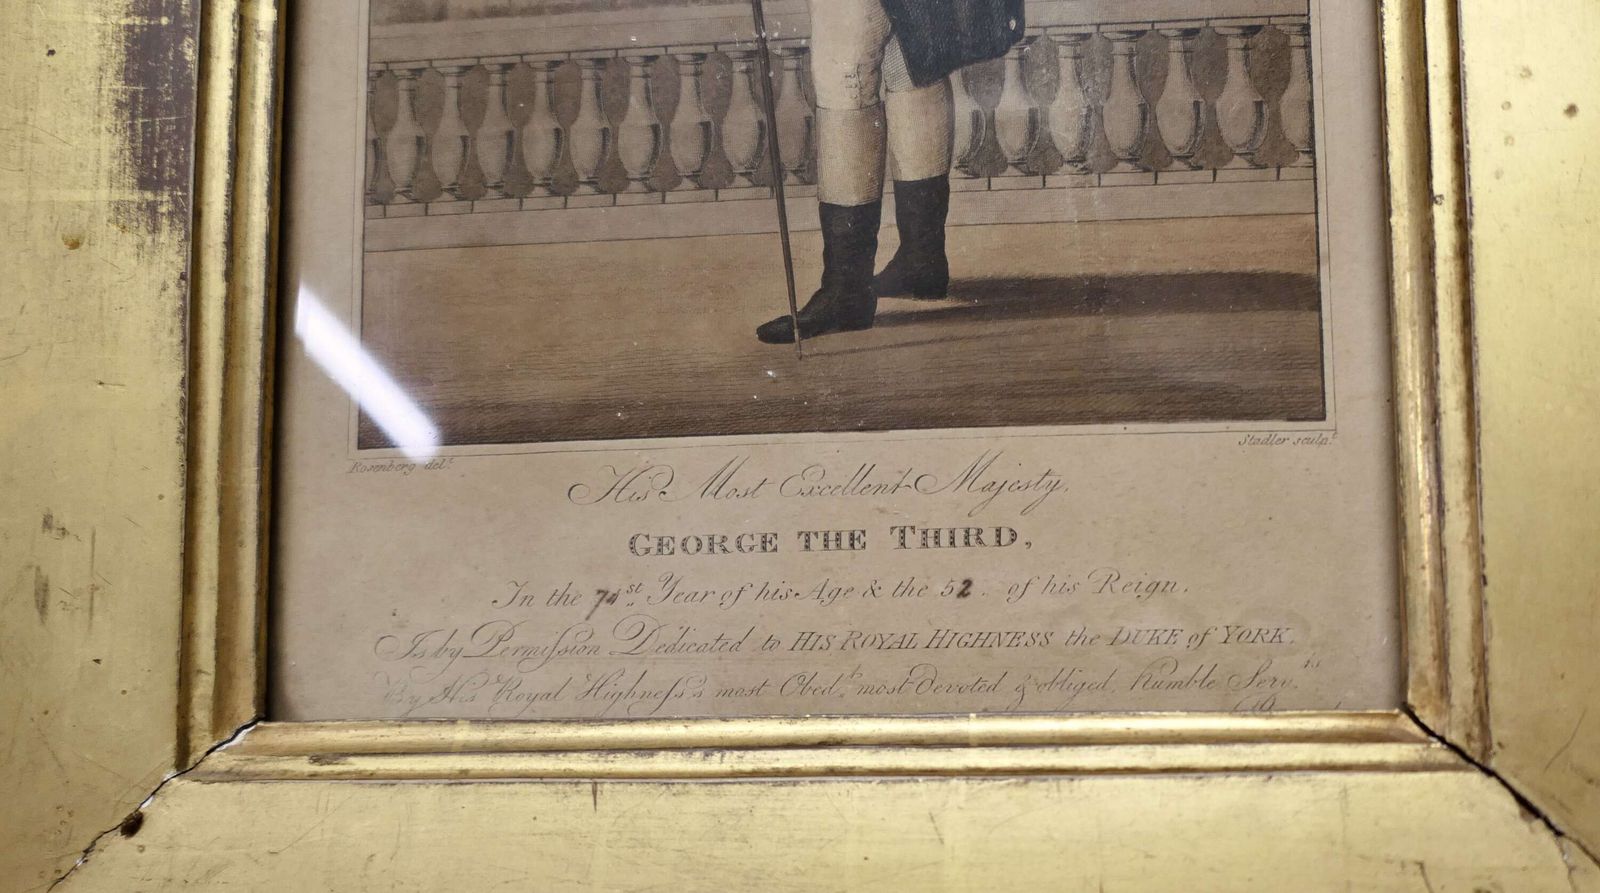 Rosenberg delt.
Stadler sculpt.
His Most Excellent Majesty,
GEORGE THE THIRD,
In the 74st. Year of his Age & the 52. of his Reign.
Is by Permiſsion Dedicated to HIS ROYAL HIGHNESS the DUKE of YORK,
By His Royal Highneſs's most Obedt. most devoted & obliged, Humble Servts.